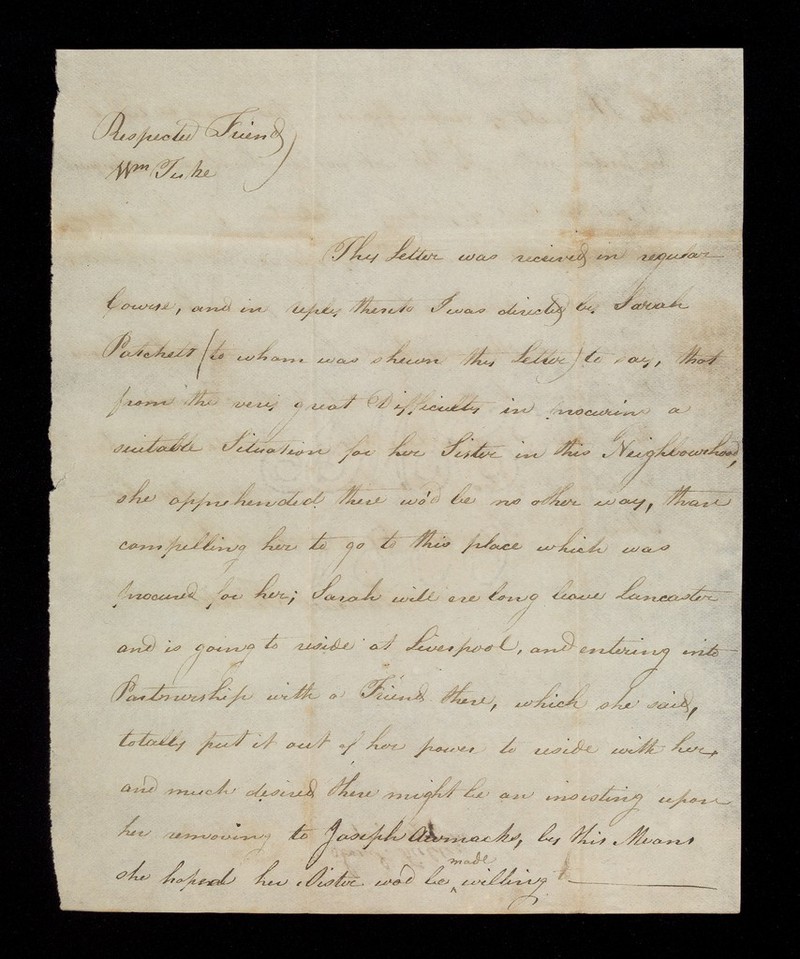 Respected Friend
Wm Tuke
This Letter was received in regular
Course, and in reply thereto I was directed by Sarah
Patchett (to whom was shewn this Letter) to say, that
from the very great Difficulty in procuring a
suitable Situation for her Sister in this Neighbourhood,
she apprehended there wo'd be no other way, than
compelling her to go to this place which was
procured for her; Sarah will ere long leave Lancaster
and is going to reside at Liverpool, and entering into
Partnership with a Friend there, which she said,
totally put it out of her power to reside with her,
and much desired there might be an insisting upon
her removing to Joseph Awmacks, by this Means
she hoped her Sister wo'd be made willing